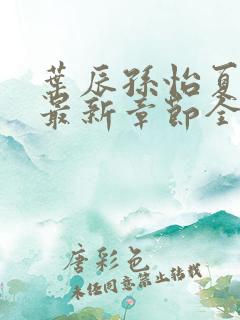 葉辰孫怡夏
最新章節全
唐彩色
未经同意禁止转载